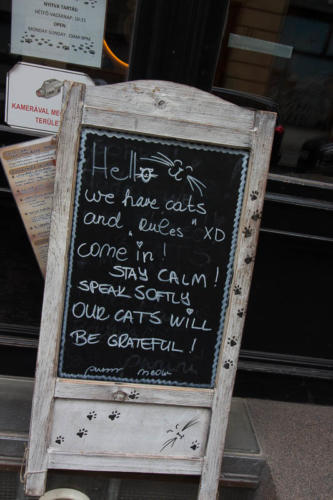 NYITVA TARTÁS
HÉTFŐ-VASÁRNAP: 10-21
OPEN
MONDAY-SUNDAY: 10AM-9PM
KAMERÁVAL
TERÜLET
Hello
we have cats
and „rules" XD
come in!
STAY CALM!
SPEAK SOFTLY
OUR CATS WILL
BE GRATEFUL!
purrr meow